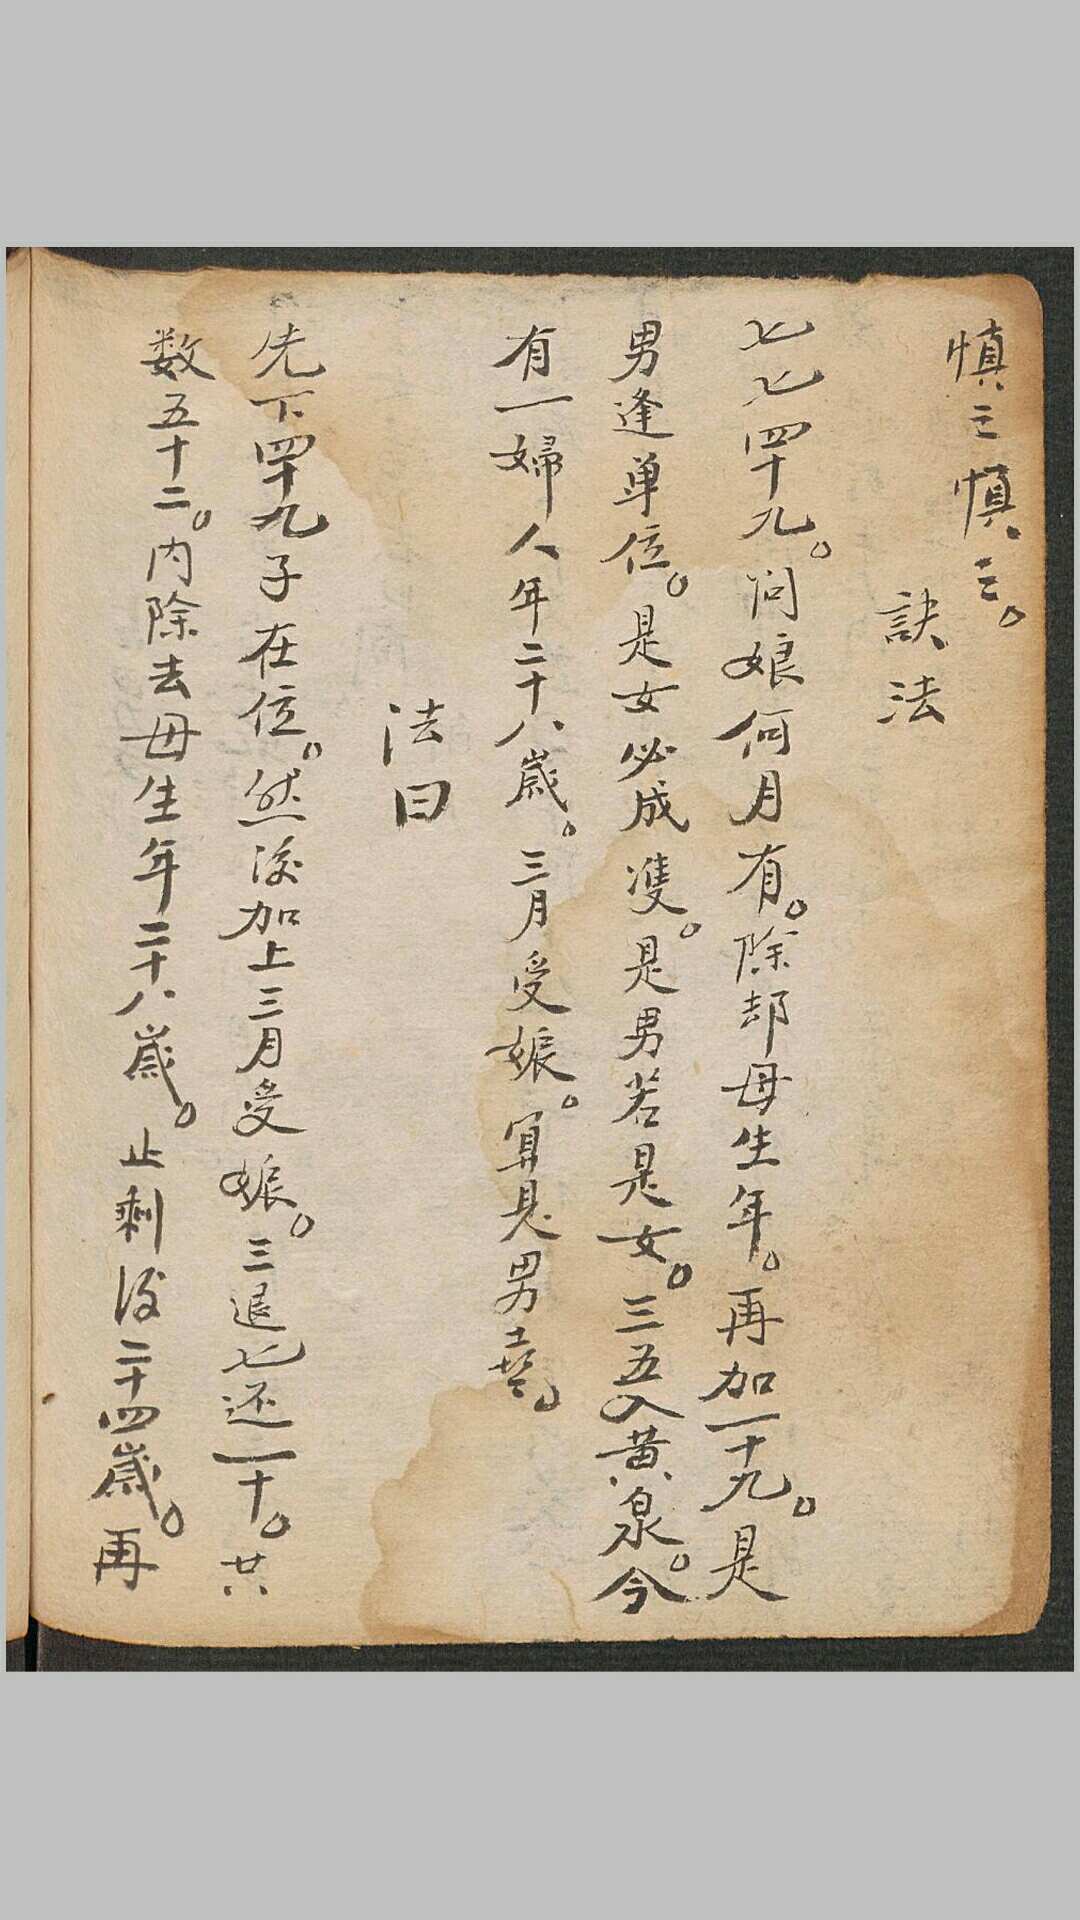 慎之慎之。
訣法
七七四十九。问娘何月有。除却母生年。再加一十九。是
男逢单位。是女必成雙。是男若是女。三五入黄泉。今
有一婦人年二十八歲。三月受娠。算是男
法曰
先下四十九子在位。然後加上三月受娠。三退七还一十。共
数五十二。内除去母生年二十八歲。止剩後二十四歲。再